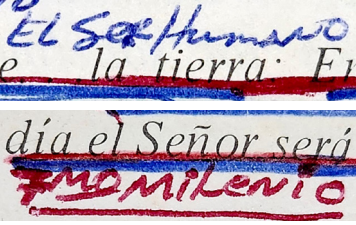 EL SER HUMANO
e la tierra: En
día el Señor será
7MO MILENIO